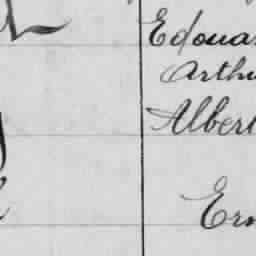 Edoua
Arthu
Albert
Ern